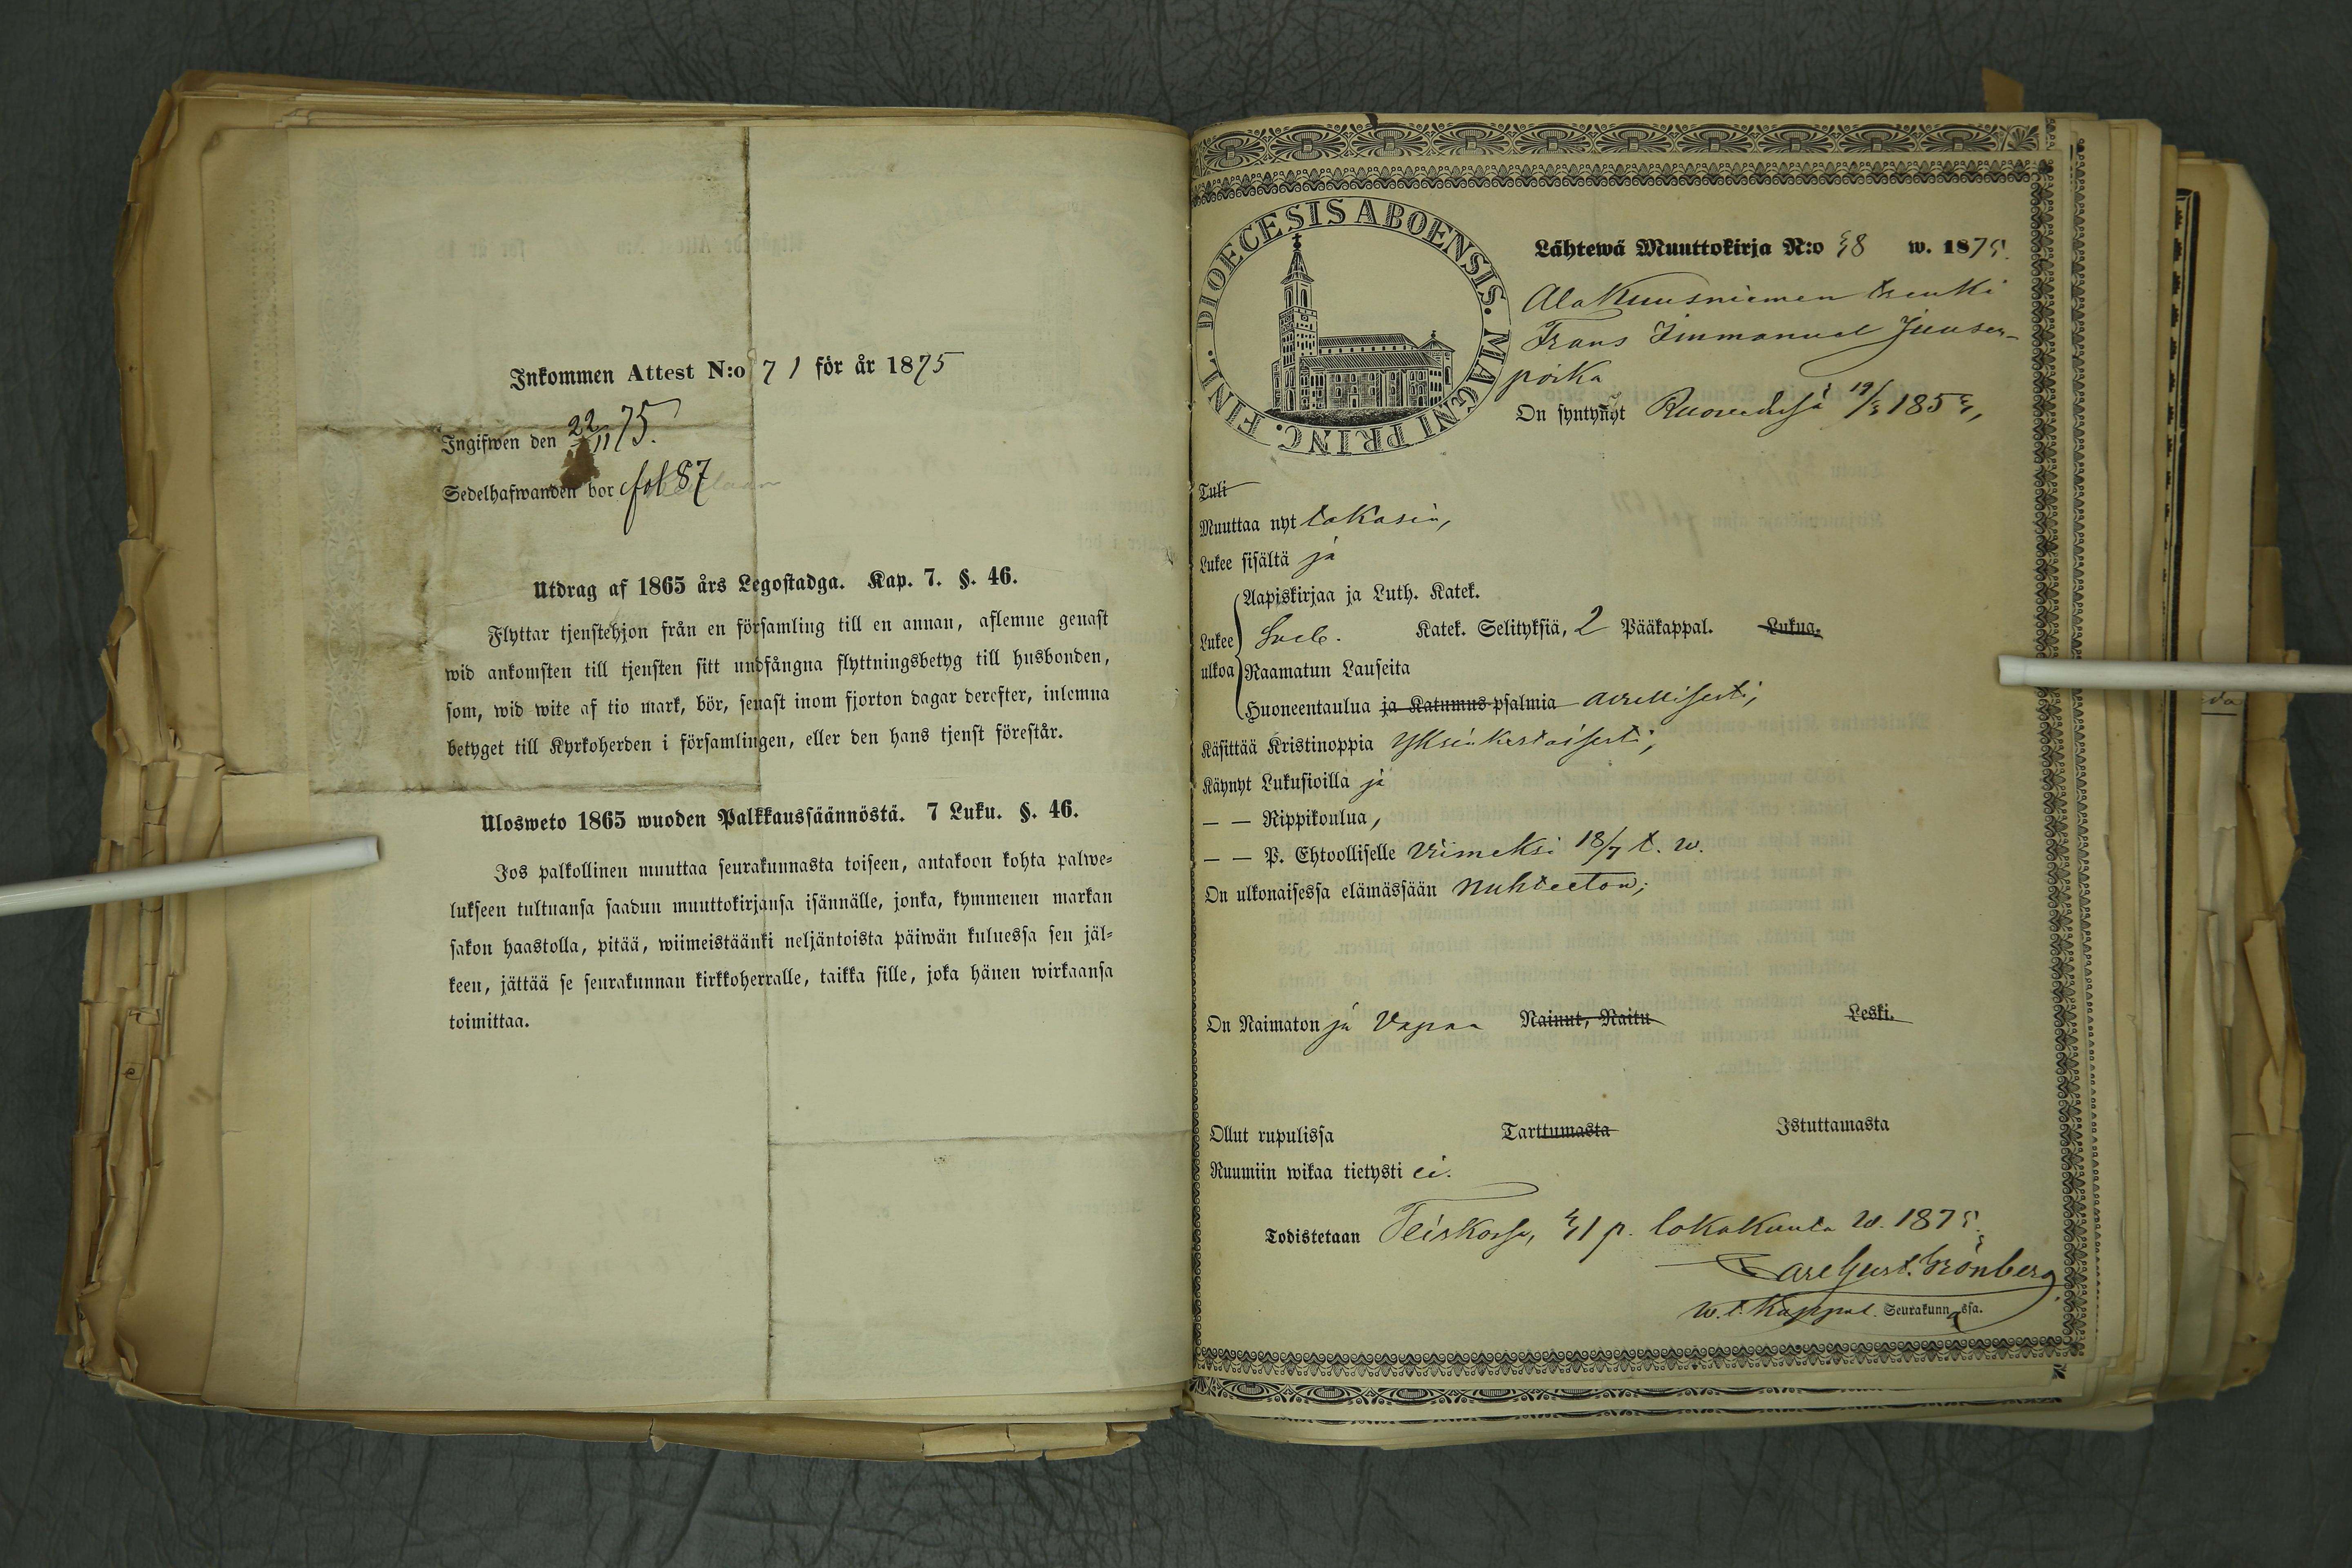 Inkommen Attest N:o 71 för år 1875
Ingifwen den 22/11 75.
Sedelhafwanden bor fol 87
Utdrag af 1865 års Legostadga. Kap. 7. §. 46.
Flyttar tjenstehjon från en församling till en annan, aflemne genast
wid ankomsten till tjensten sitt undfångna flyttningsbetyg till husbonden,
som, wid wite af tio mark, bör, senast inom fjorton dagar derefter, inlemna
betyget till Kyrkoherden i församlingen, eller den hans tjenst förestår.
Ulosweto 1865 wuoden Palkkaussäännöstä. 7 Luku. §. 46.
Jos palkollinen muuttaa seurakunnasta toiseen, antakoon kohta palwe-
lukseen tultuansa saadun muuttokirjansa isännälle, jonka, kymmenen markan
sakon haastolla, pitää, wiimeistäänki neljäntoista päiwän kuluessa sen jäl-
keen, jättää se seurakunnan kirkkoherralle, taikka sille, joka hänen wirkaansa
toimittaa.
DIOECESIS ABOENSIS. MAGNI PRINC. FINL.
Lähtewä Muuttokirja N:o 38 w. 1875.
AlaKuusniemen trenki
Frans Immanuel Juusen-
poika
On syntynyt Ruovedessä 19/3 1853,
Tuli
Muuttaa nyt takasin,
Lukee sisältä ja
Aapiskirjaa ja Luth. Katek.
Lukee ulkoa Sveb. Katek. Selityksiä, 2 Pääkappal. Lukua.
Raamatun Lauseita
Huoneentaulua ja Katumus-psalmia auttavasti,
Käsittää Kristinoppia Yksinkertaisesti,
Käynyt Lukusioilla ja
— — Rippikoulua,
— — P. Ehtoolliselle Viimeksi 18/7 t. w.
On ulkonaisessa elämässään nuhteeton;
On Naimaton ja Vapaa Nainut, Naitu Leski.
Ollut rupulissa Tarttumasta Istuttamasta
Ruumiin wikaa tietysti ei.
Todistetaan Teiskossa, 31 p. lokakuuta w. 1875.
Carl Gust. Grönberg
w.t. Kappal. Seurakunnassa.